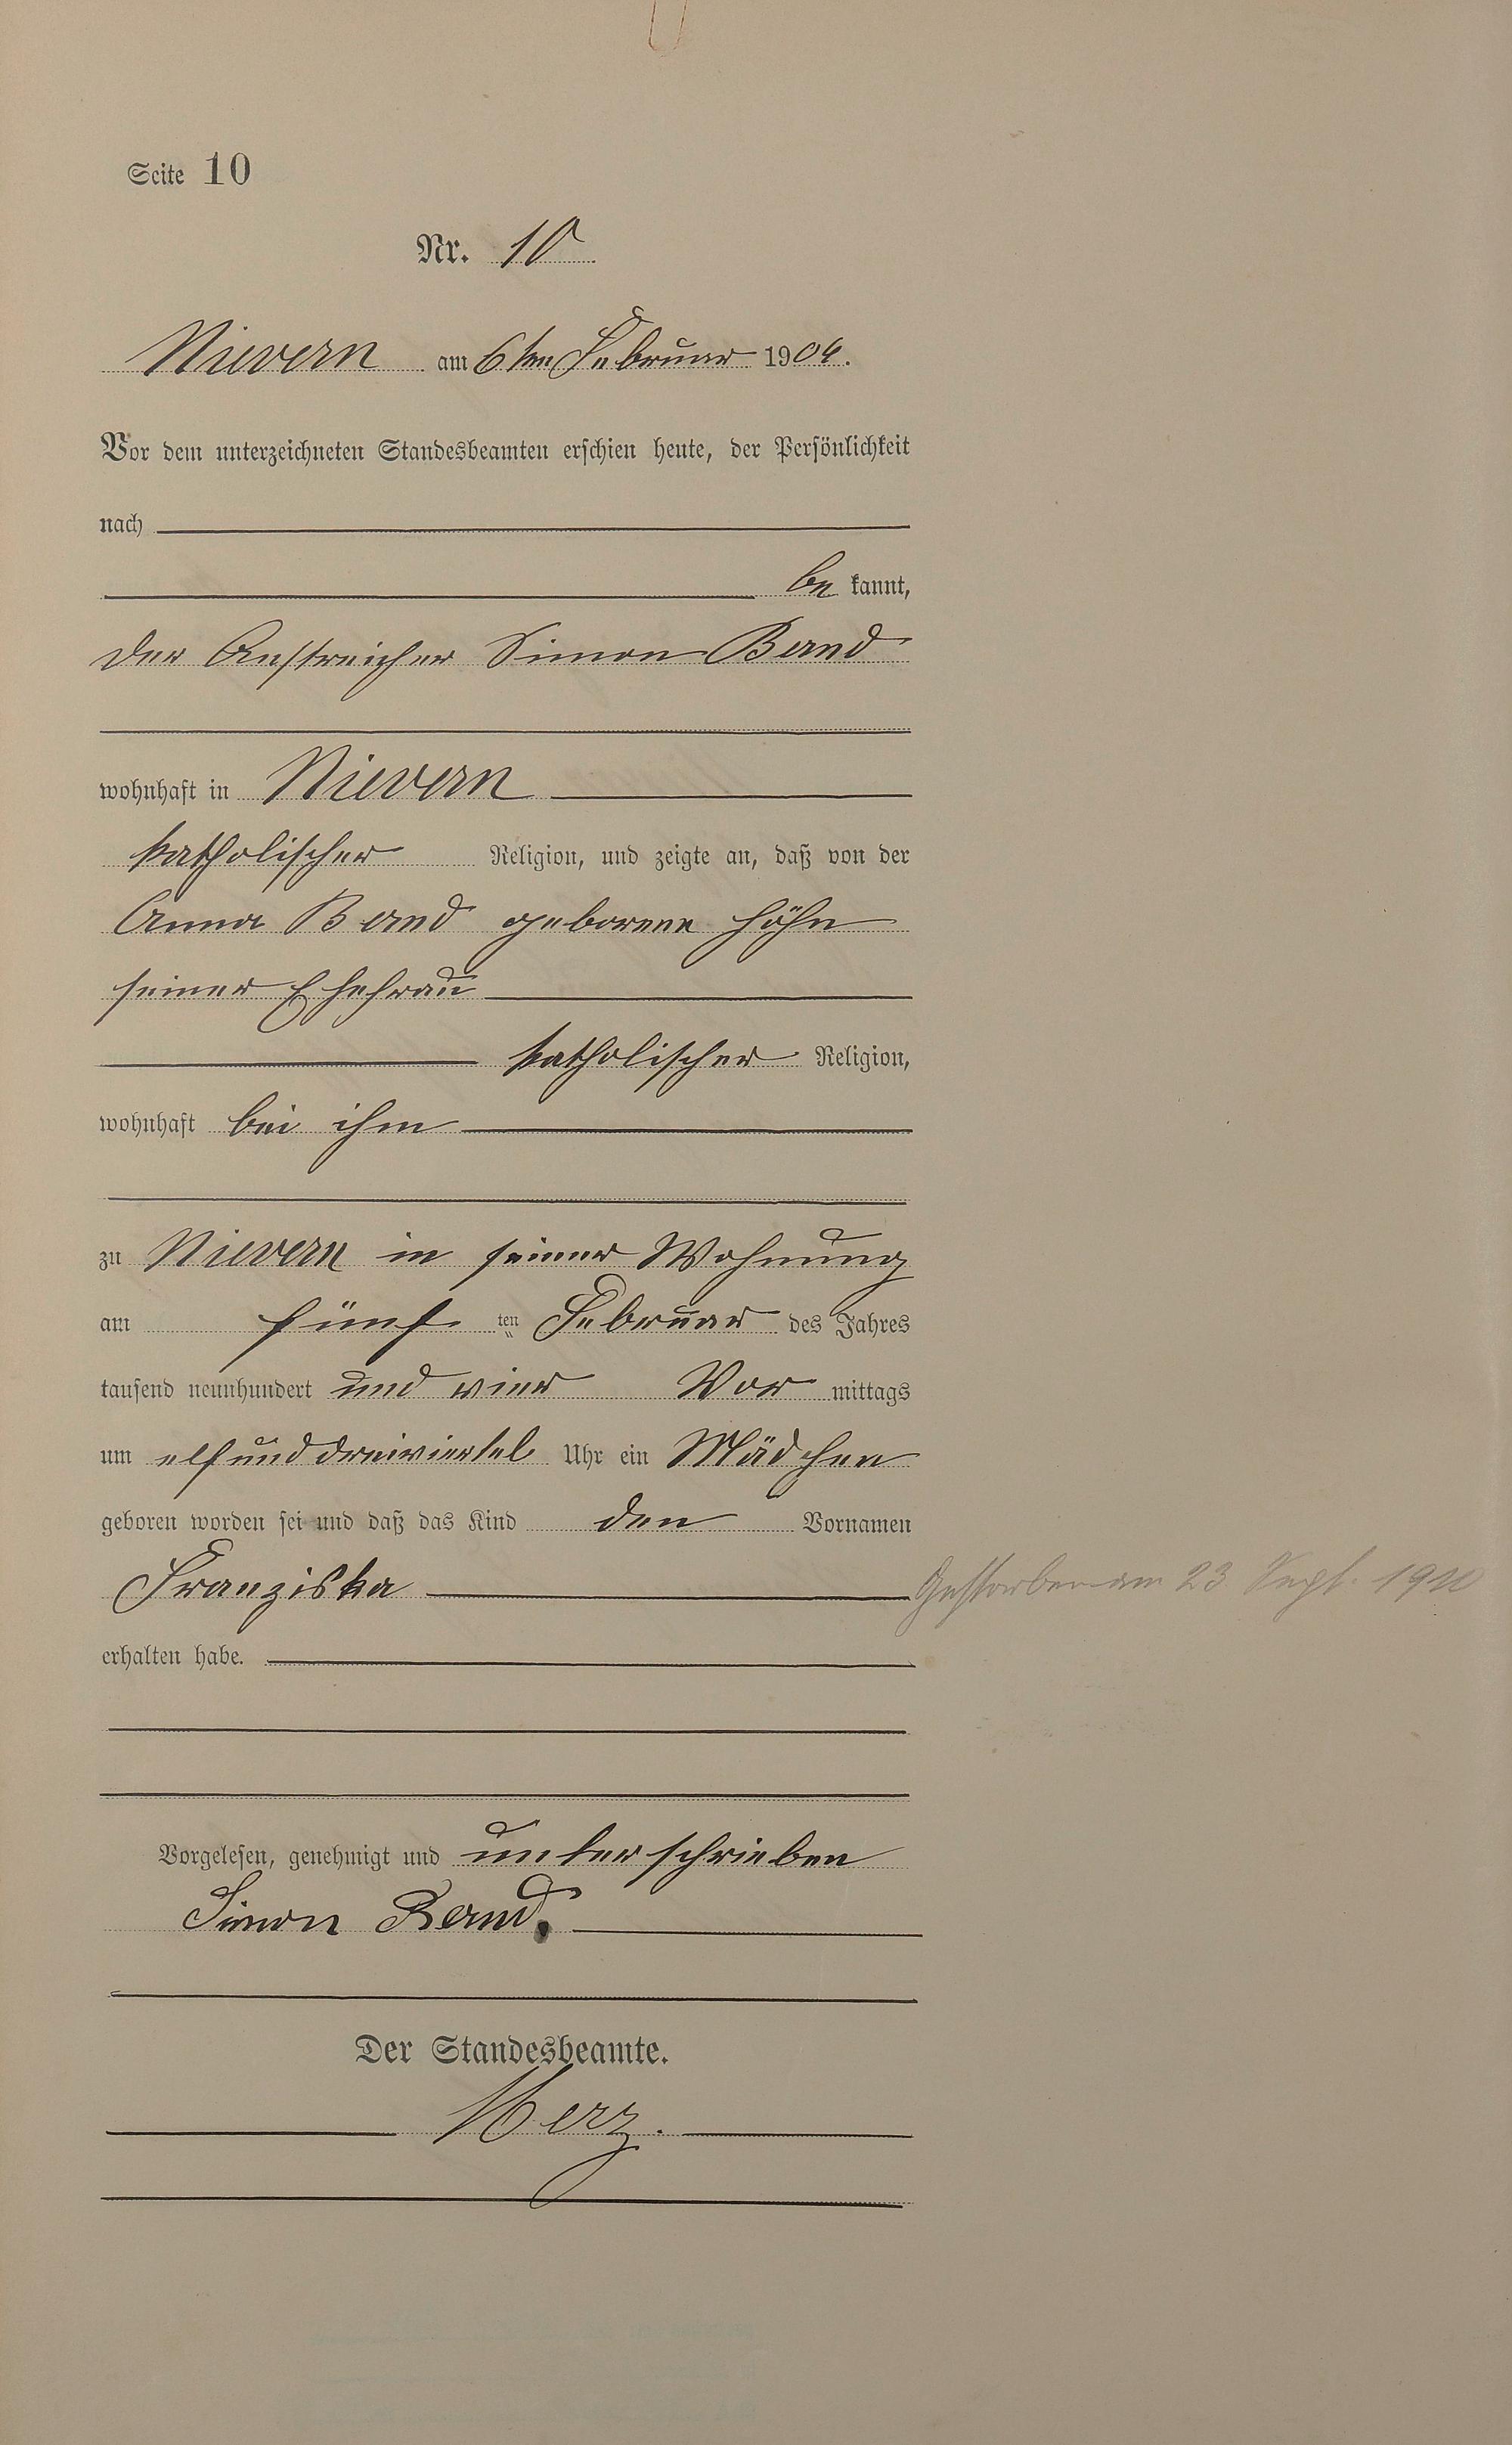 Seite 10
Nr. 10
Nievern am 6ten Februar 1904.
Vor dem unterzeichneten Standesbeamten erschien heute, der Persönlichkeit
nach
be kannt,
der Anstreicher Simon Band
wohnhaft in Nievern
katholischer Religion, und zeigte an, daß von der
Anna Band geborene Höhn
seiner Ehefrau
katholischer Religion,
wohnhaft bei ihm
zu Nievern in seiner Wohnung
am fünf ten Februar des Jahres
tausend neunhundert und vier Vor mittags
um elfunddreiviertel Uhr ein Mädchen
geboren worden sei und daß das Kind den Vornamen
Franziska
Gestorben am 23 Sept. 1910
erhalten habe.
Vorgelesen, genehmigt und unterschrieben
Simon Band.
Der Standesbeamte.
Merz.